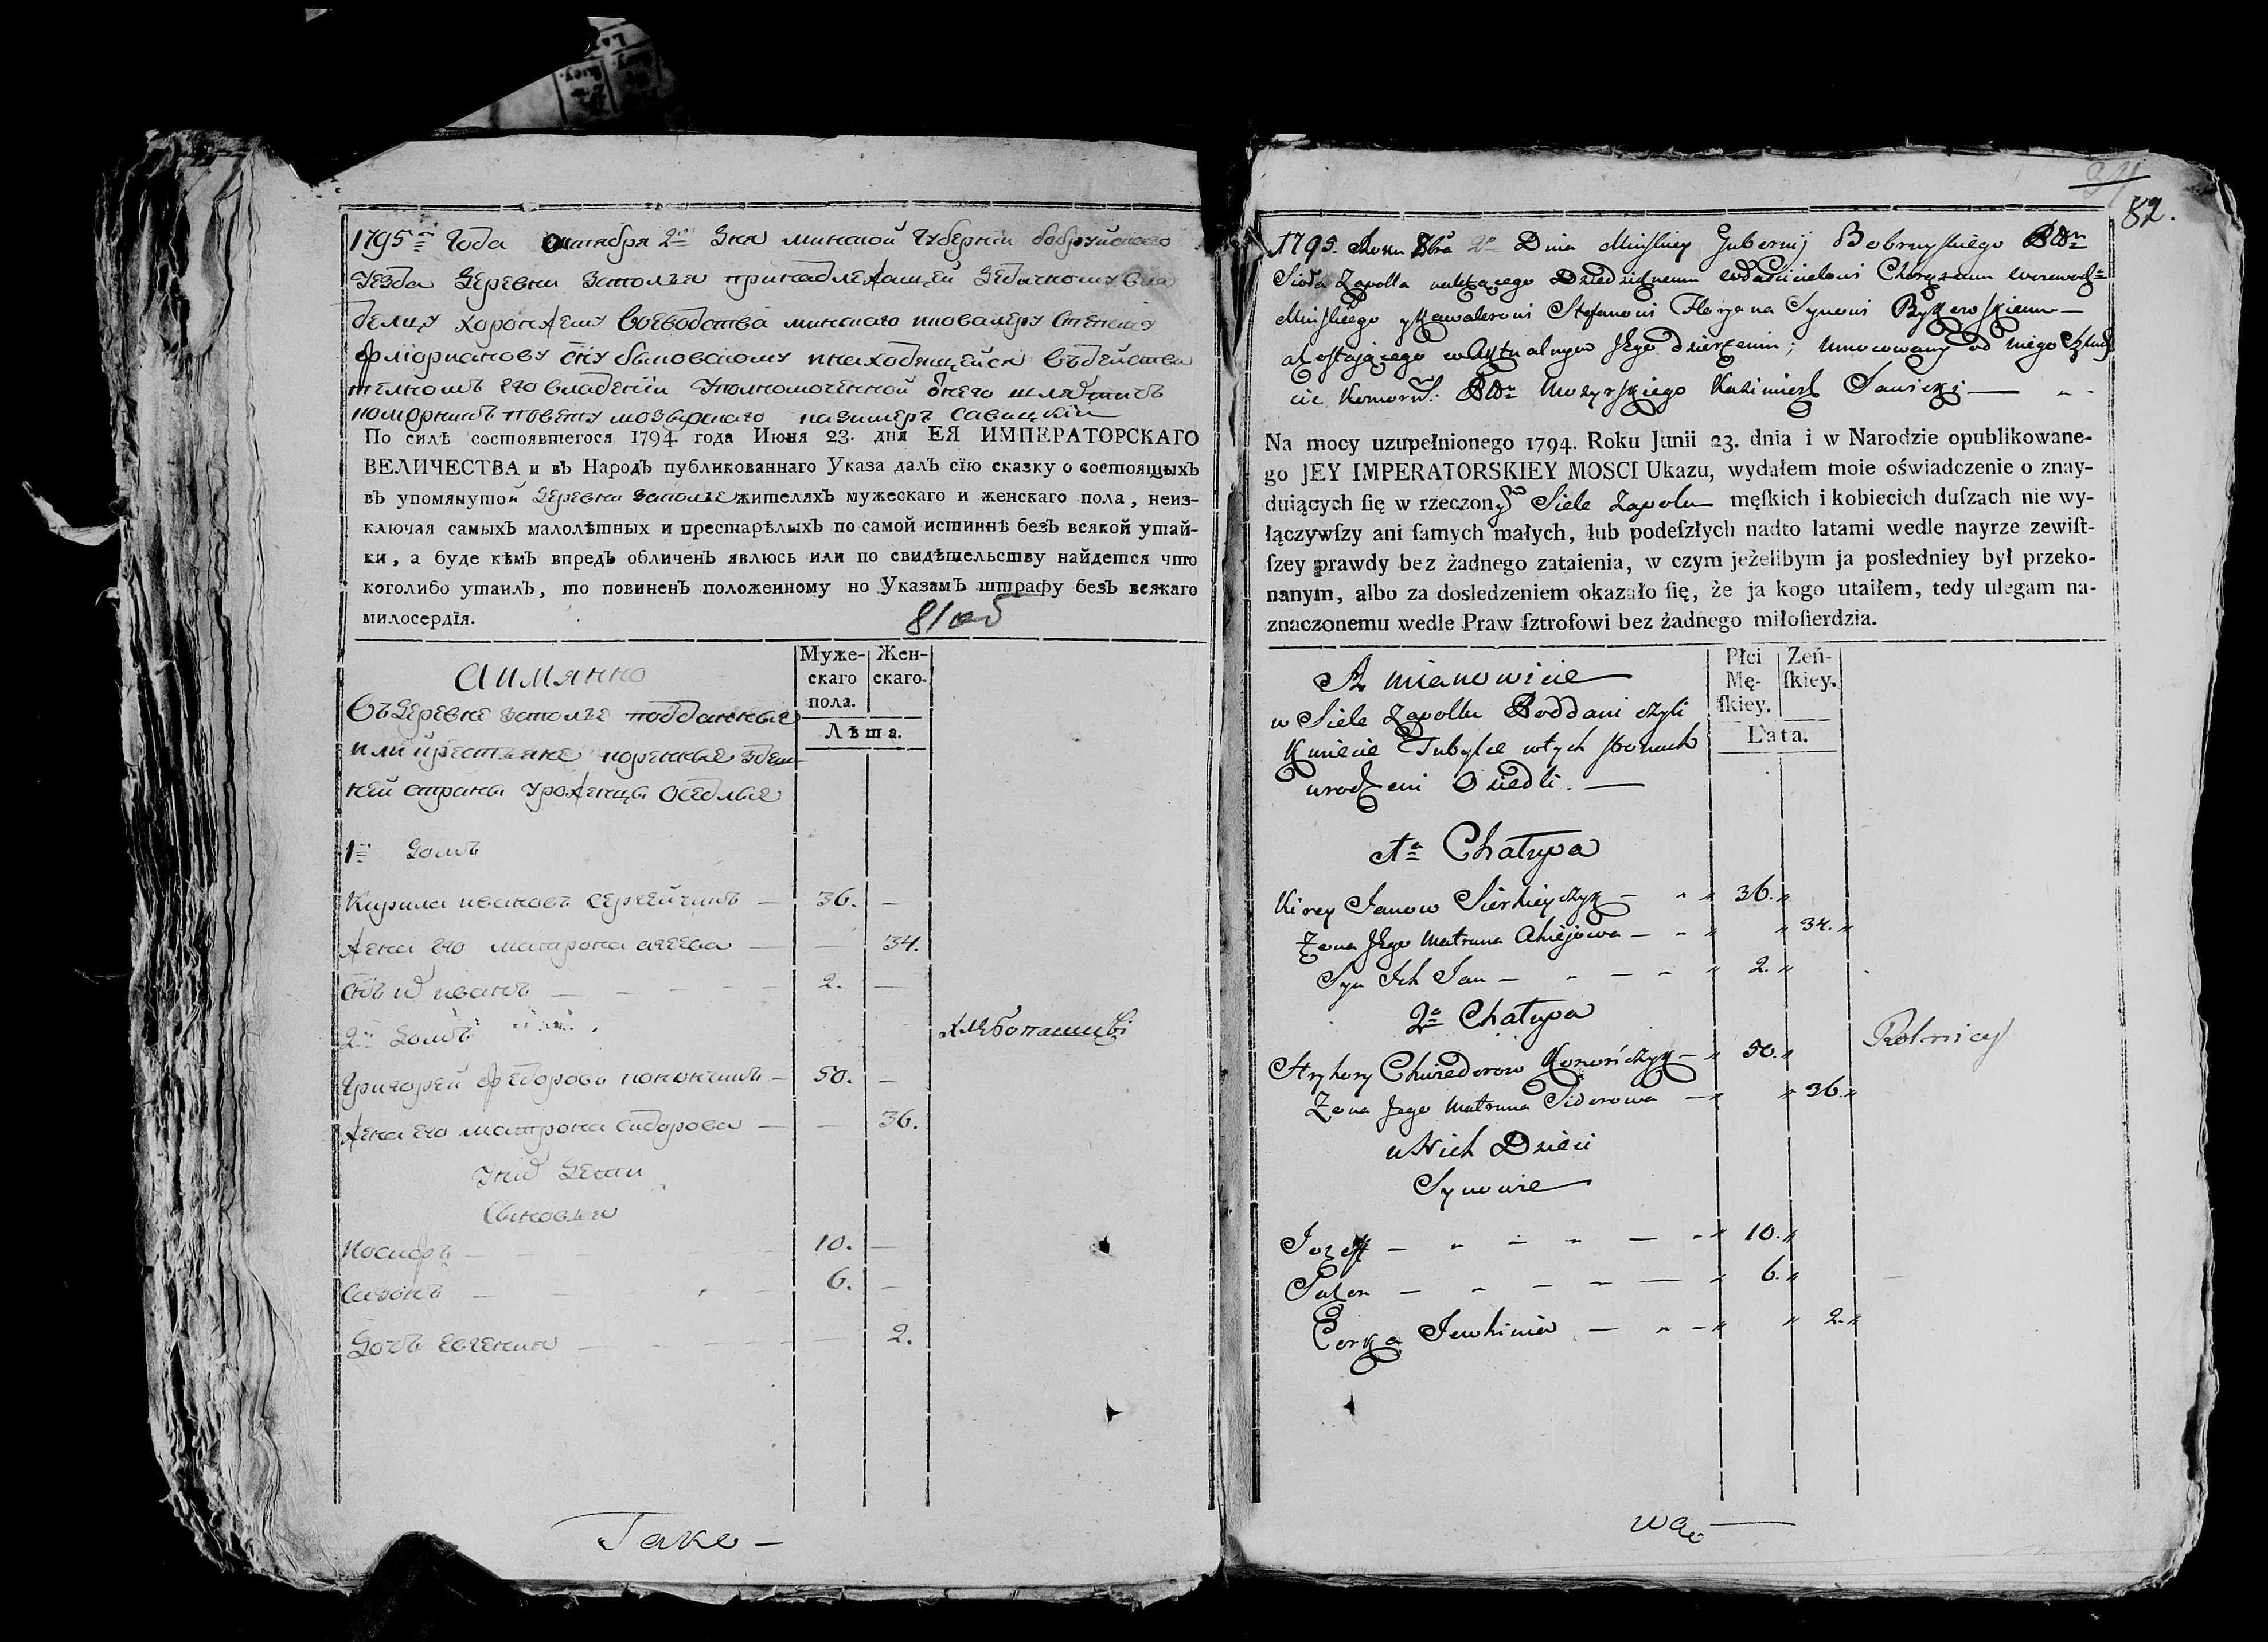 1795г Года Октября 2го Дня минской Губерній бобруйского
Уезда Деревни Заполья принадлежащей Дедичному вла
делцу хоронжему воеводства минского икавалеру Степану
флюриянову сну быковскому инаходящейся вдействи
телномъ его владеніи Уполномоченной онего шляхтичъ
коморникъ повету мозырского казимеръ Савицкій
По силѣ состоявшегося 1794. года Июня 23. дня ЕЯ ИМПЕРАТОРСКАГО
ВЕЛИЧЕСТВА и въ Народъ публикованнаго Указа далъ сію сказку о состоящыхъ
въ упомянутой Деревни Заполье жителяхъ мужескаго и женскаго пола, неиз-
ключая самыхъ малолѣтныхъ и престарѣлыхъ по самой истиннѣ безъ всякой утай-
ки, а буде кѣмъ впредь обличенъ явлюсь или по свидѣтельству найдется что
коголибо утаилъ, то повиненъ положенному но Указамъ штрафу безъ всякаго
милосердія.
81 об
Муже-
скаго
пола.
Жен-
скаго.
Лѣта.
Аимянно
Въ Деревне Заполье подданные
или крестьяне коренные здеш
ней страны уроженцы оседлые
1й Домъ
Кирила ивановъ Сергейчикъ — 36. —
Жена его матрона агеева — — 34.
Снъ их иванъ — 2. —
2й Домъ
хлебопашцы
Григорей федоровъ конончикъ — 50. —
Жена его матрона Сидорова — — 36.
У них Дети
Сыновья
Иосифъ — 10. —
Сазонъ — 6. —
Дочь евгения — — 2.
Таке —
34
82.
1795. Roku 8bra 2º Dnia Minskiey Gubernij Bobruyskiego Pttu
Sioła Zapolla należącego Dziedzicznemu Właścicielowi Chorążemu Wojewodz:
Mińskiego y Kawalerowi Stefanowi Floryana Synowi Bykowskiemu —
a zostającego w Aktualnym Jego dzierżeniu; Umocowany od niego Szlach
cic Komorn: Pttu Mozyrskiego Kazimierz Sawicki —
Na mocy uzupełnionego 1794. Roku Junii 23. dnia i w Narodzie opublikowane-
go JEY IMPERATORSKIEY MOSCI Ukazu, wydałem moie oświadczenie o znay-
duiących ſię w rzeczonym Siele Zapolu męſkich i kobiecich duſzach nie wy-
łączywſzy ani ſamych małych, łub podeſzłych nadto latami wedle nayrze zewiſt-
ſzey prawdy bez żadnego zataienia, w czym jeżelibym ja posledniey był przeko-
nanym, albo za dosledzeniem okazało ſię, że ja kogo utaiłem, tedy ulegam na-
znaczonemu wedle Praw ſztrofowi bez żadnego miłoſierdzia.
Płci
Mę-
ſkiey.
Zeń-
ſkiey.
Lata.
A mianowicie
w Siele Zapollu Poddani czyli
Kmiecie Tubylce w tych stronach
urodzeni Osiedli. —
1a Chałupa
Kirey Janow Sierhieyczyk — 36.
Żona Jego Matruna Ahiejowa — 34.
Syn Ich Jan — 2.
2a Chałupa
Rolnicy
Hryhory Chwiedorow Kononczyk — 50.
Zona Jego Matruna Sidorowa — 36.
u Nich Dzieci
Synowie
Jozeff — 10.
Sazon — 6.
Corka Jewhinia — 2.